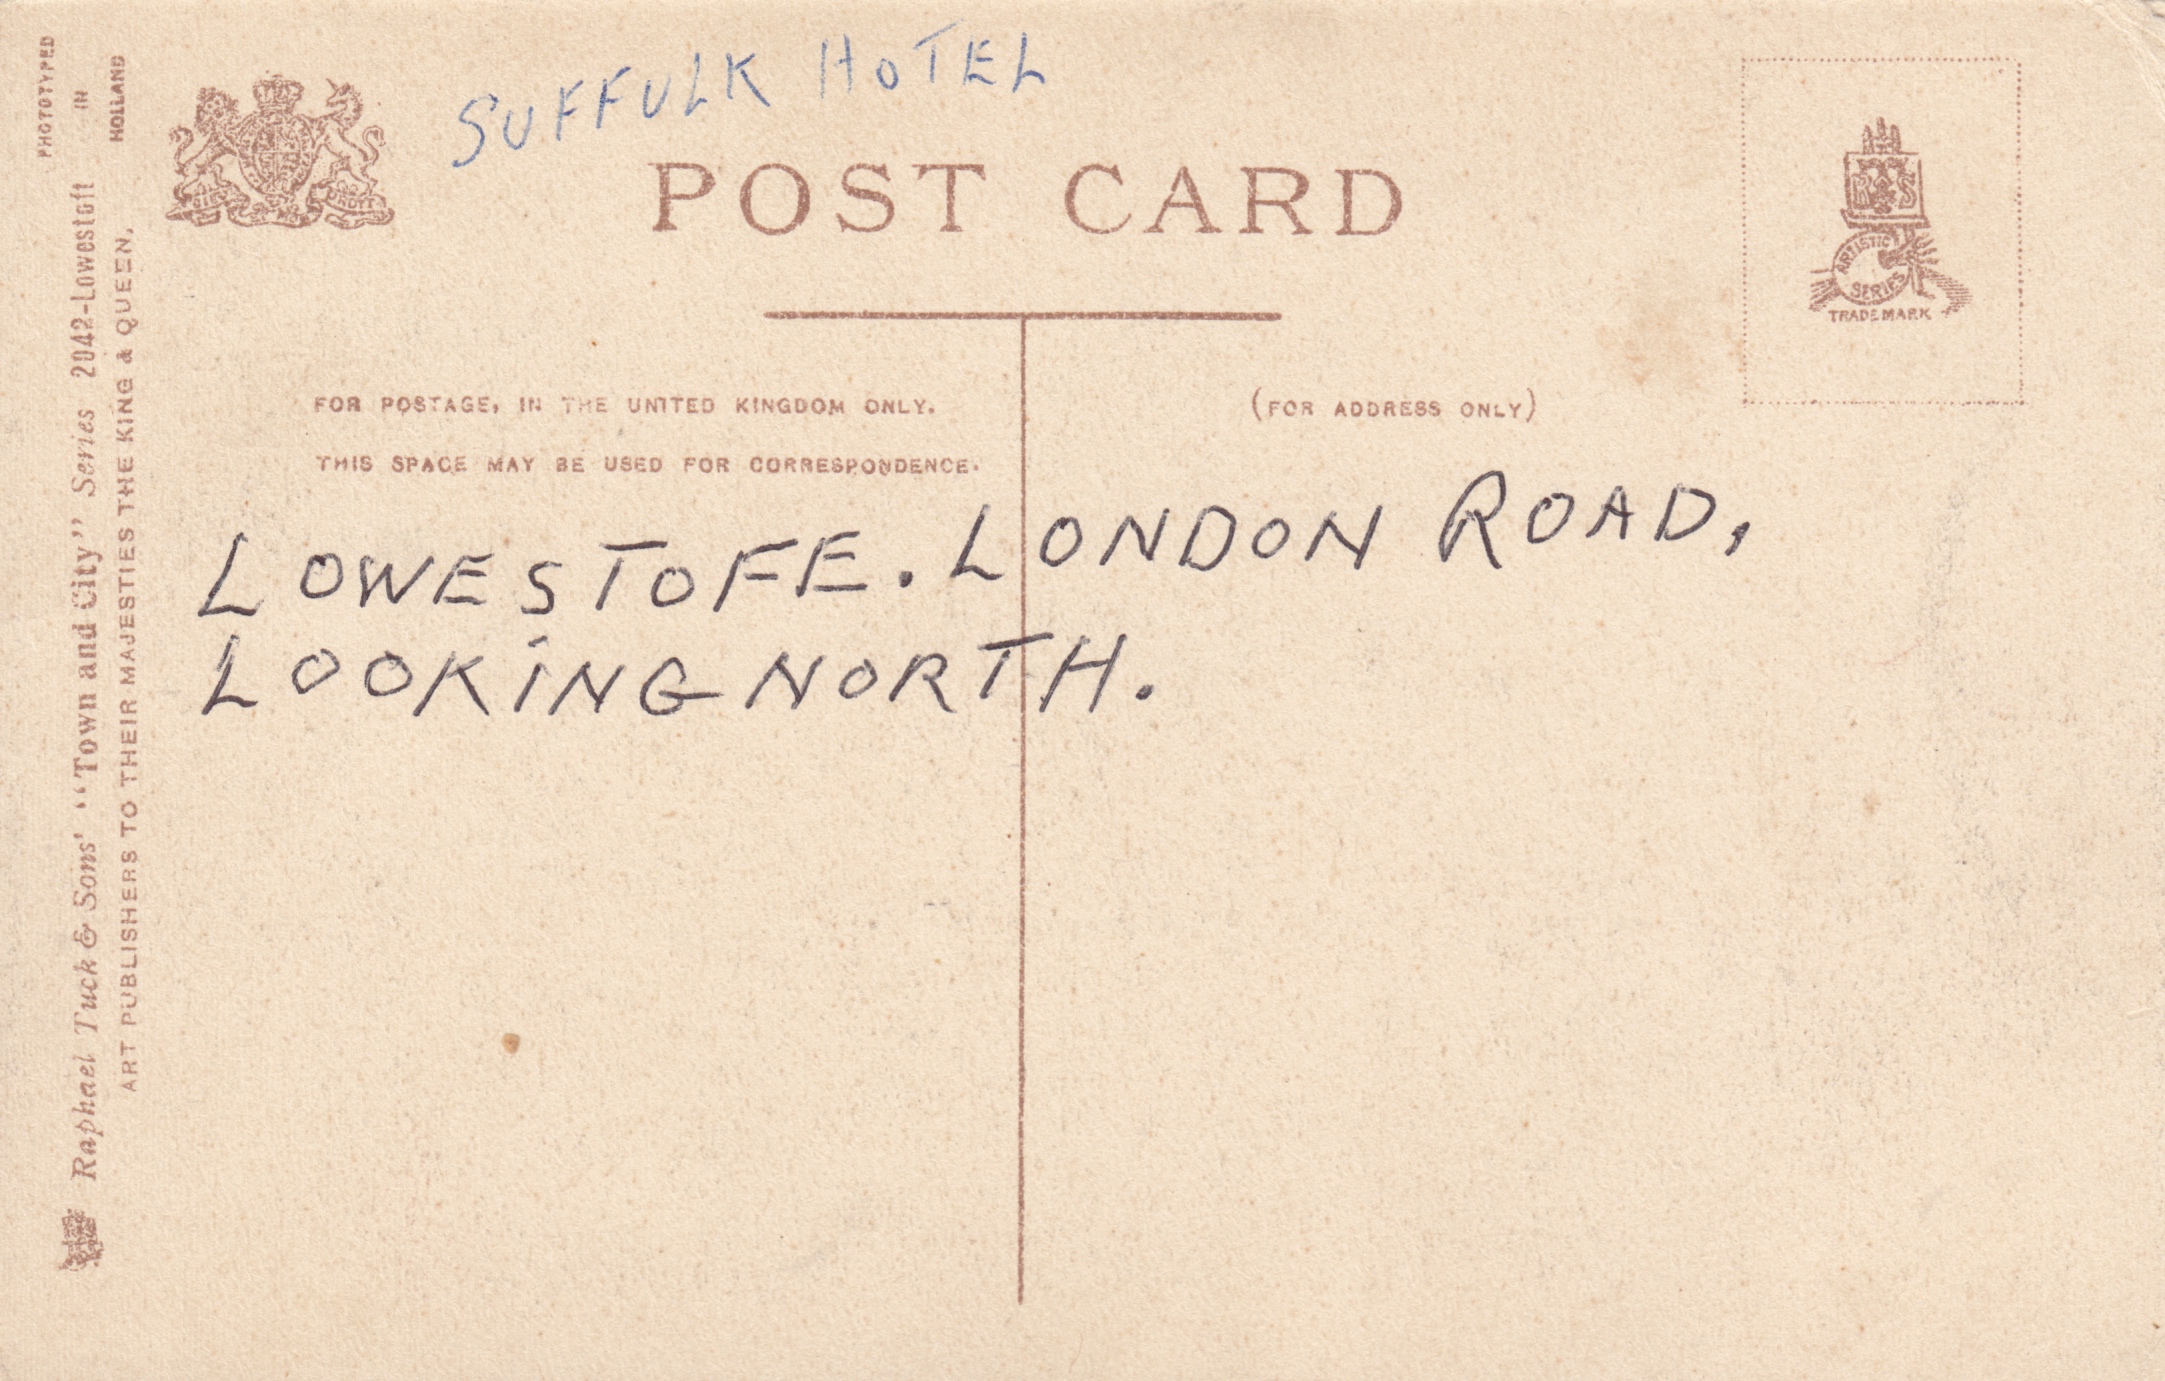 SUFFULK HOTEL
POST CARD
FOR POSTAGE, IN THE UNITED KINGDOM ONLY.
THIS SPACE MAY BE USED FOR CORRESPONDENCE.
(FOR ADDRESS ONLY)
LOWESTOFE. LONDON ROAD,
LOOKING NORTH.
PHOTOTYPED
IN
HOLLAND
Raphael Tuck & Sons' "Town and City" Series 2042-Lowestoft
ART PUBLISHERS TO THEIR MAJESTIES THE KING & QUEEN.
ARTISTIC
SERIES
TRADE MARK